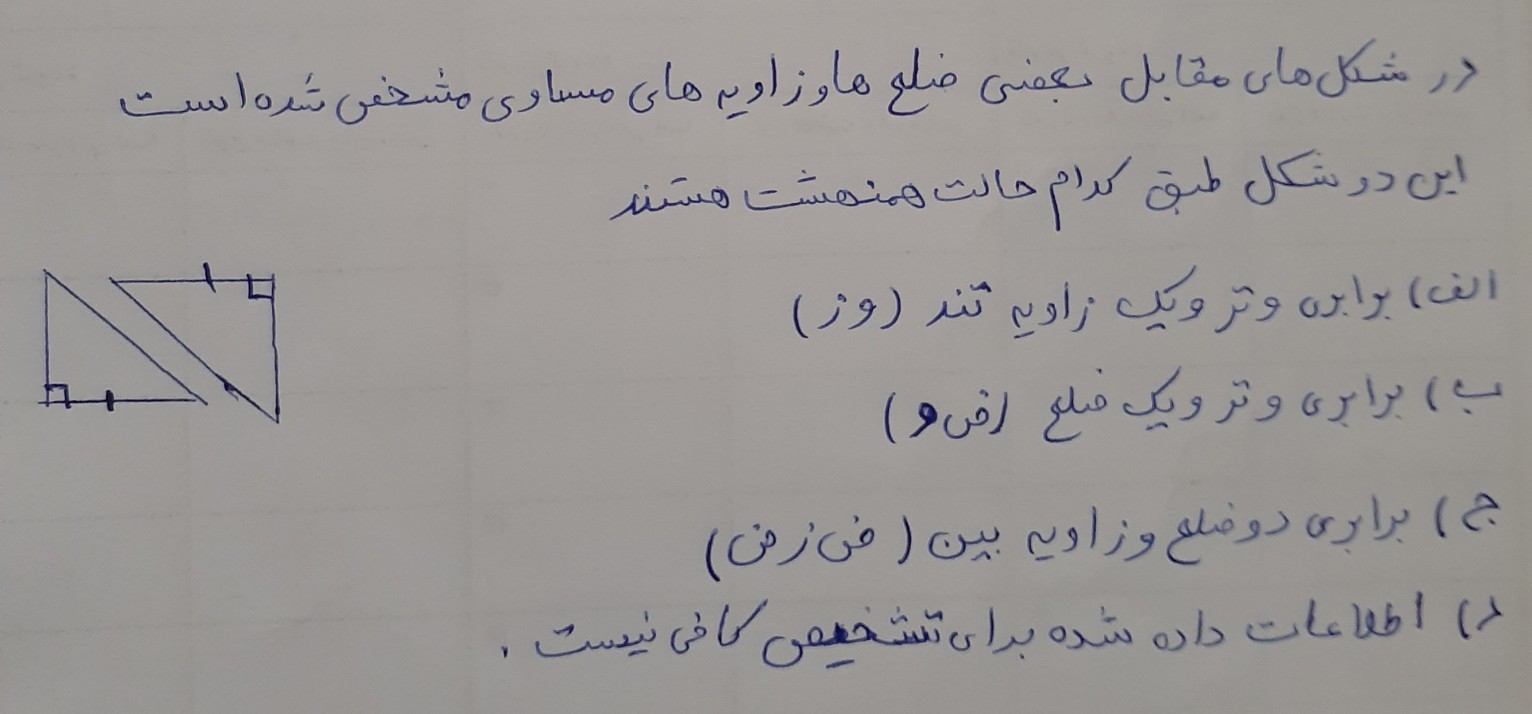 در شکل های مقابل بعضی ضلع ها و زاویه های مساوی مشخص شده است
این دو شکل طبق کدام حالت همنهشت هستند
الف) برابری وتر و یک زاویه تند (وز)
ب) برابری وتر و یک ضلع (ض و)
ج) برابری دو ضلع و زاویه بین (ض ز ض)
د) اطلاعات داده شده برای تشخیص کافی نیست .